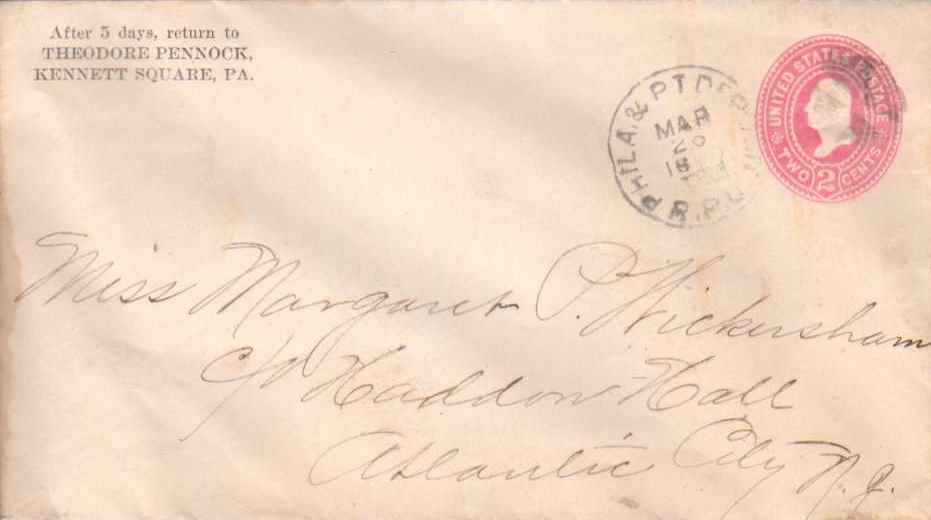 After 5 days, return to
THEODORE PENNOCK,
KENNETT SQUARE, PA.
PHILA. & PT. DEP.
MAR
26
18
R.P.O.
UNITED STATES POSTAGE
TWO 2 CENTS
Miss Margaret P. Wickersham
c/o Haddon Hall
Atlantic City N.J.